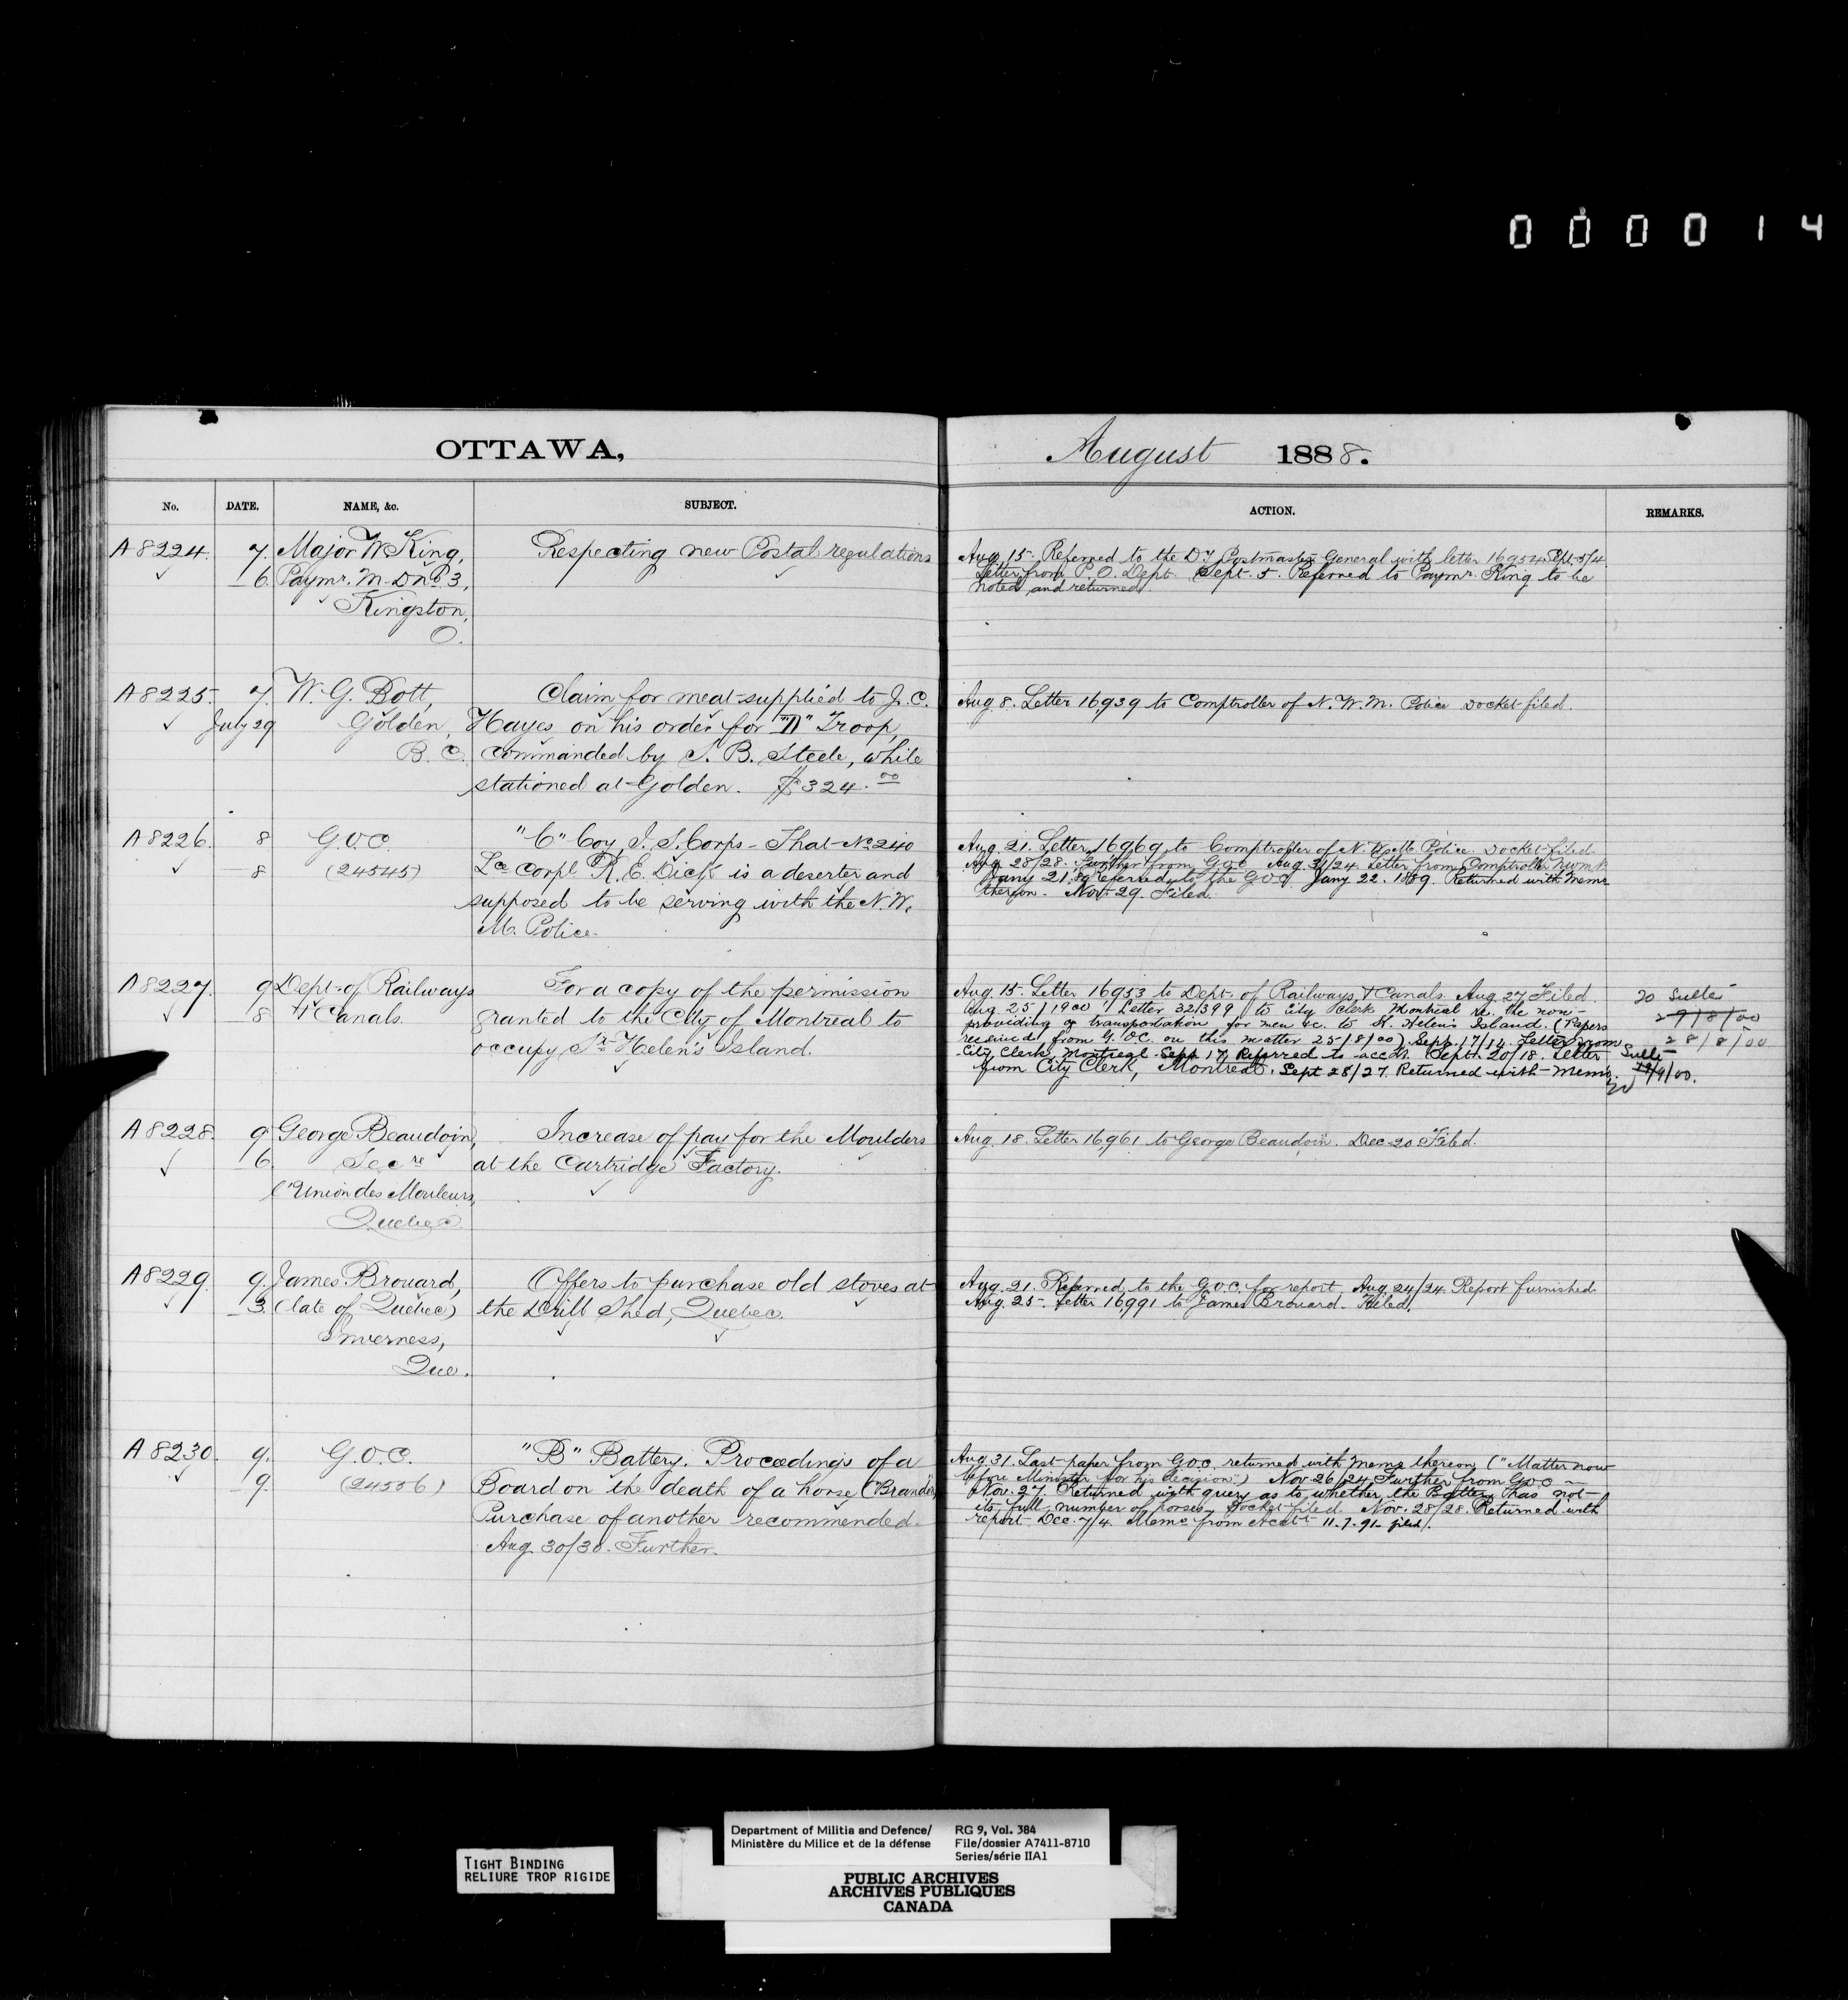 000014
OTTAWA,
August 1888.
No.
DATE.
NAME, &c.
SUBJECT.
ACTION.
REMARKS.
A 8224.
7.
6
Major W. King,
Paymr. M. D. No 3,
Kingston,
O.
Respecting new Postal regulations
Aug. 15. Referred to the Dy Postmaster General with letter 16954. Sept. 5/4
Letter from P. O. Dept. Sept. 5. Referred to Paymr. King to be
noted and returned.
A 8225.
7.
July 29
W. G. Bott,
Golden,
B. C.
Claim for meat supplied to J. C.
Hayes on his order for "D" Troop,
commanded by S. B. Steele, while
stationed at Golden. $324.00
Aug. 8. Letter 16939 to Comptroller of N. W. M. Police Docket filed.
A 8226.
8
8
G.O.C.
(24545)
"C" Coy, I. S. Corps - That No. 240
Lce Corpl R. E. Dick is a deserter and
supposed to be serving with the N. W.
M. Police.
Aug. 21. Letter 16969 to Comptroller of N. W. M. Police. Docket filed.
Aug. 28/28. Further from G.O.C. Aug. 31/24. Letter from Comptroller N.W.M.P.
Jany 21. 89 Referred to the G.O.C. Jany 22. 1889. Returned with Memo
thereon. Nov. 29. Filed.
A 8227.
9
8
Dept. of Railways
& Canals.
For a copy of the permission
granted to the City of Montreal to
occupy St. Helen's Island.
Aug. 15. Letter 16953 to Dept. of Railways & Canals. Aug 27 Filed.
Aug 25/1900 Letter 32399 to City Clerk Montreal re. the non-
providing of transportation for men &c. to St. Helen's Island. (Papers
received from G.O.C. on this matter 25/8/00) Sept. 17/14 Letter from
City Clerk, Montreal. Sept 17 Referred to acct. Sept. 20/18. Letter
from City Clerk, Montreal. Sept 28/27 Returned with Memo.
29/8/00
28/8/00
A 8228.
9
6.
George Beaudoin,
Secre
("Union des Mouleurs,
Quebec.
Increase of pay for the Moulders
at the Cartridge Factory.
Aug. 18. Letter 16961 to George Beaudoin. Dec. 20 Filed.
A 8229.
9.
3.
James Brouard,
(late of Quebec)
Inverness,
Que.
Offers to purchase old stoves at
the Drill Shed, Quebec.
Aug. 21. Referred to the G.O.C. for report Aug. 24/24. Report furnished.
Aug. 25. Letter 16991 to James Brouard. Filed.
A 8230.
9.
9.
G.O.C.
(24556)
"B" Battery. Proceedings of a
Board on the death of a horse (Brandes)
Purchase of another recommended.
Aug 30/30. Further.
Aug. 31. Last paper from G.O.C. returned with Memo thereon. ("Matter now
before Minister for his decision.") Nov 26/24 Further from G.O.C.
Nov. 27. Returned with query as to whether the Battery has not
its full number of horses. Docket filed. Nov. 28/28. Returned with
report Dec. 7/4. Memo from Acctt 11.7.91 filed.
TIGHT BINDING
RELIURE TROP RIGIDE
Department of Militia and Defence/
Ministère du Milice et de la défense
RG 9, Vol. 384
File/dossier A7411-8710
Series/série IIA1
PUBLIC ARCHIVES
ARCHIVES PUBLIQUES
CANADA